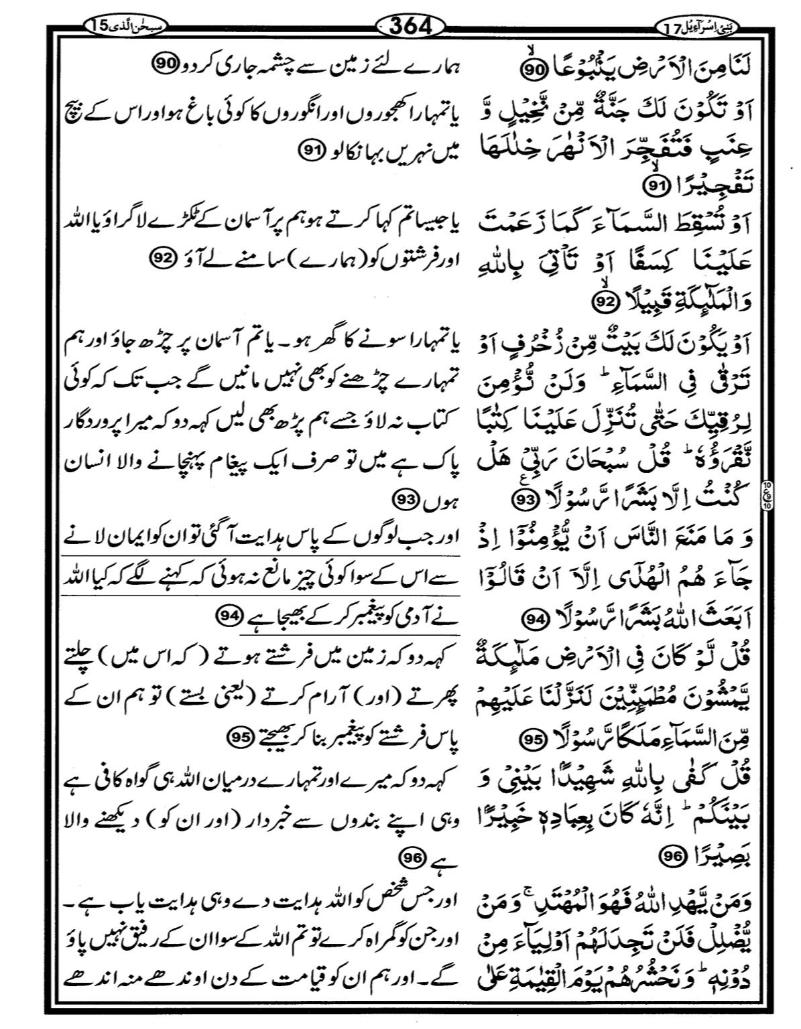 بَنِیْٓ اِسْرَآءِیْل 17
364
سبحٰن الّذی 15
لَنَا مِنَ الْاَرْضِ یَنْۢبُوْعًا ۙ 90
اَوْ تَكُوْنَ لَكَ جَنَّةٌ مِّنْ نَّخِیْلٍ وَّ
عِنَبٍ فَتُفَجِّرَ الْاَنْهٰرَ خِلٰلَهَا
تَفْجِیْرًا ۙ 91
اَوْ تُسْقِطَ السَّمَآءَ كَمَا زَعَمْتَ
عَلَیْنَا كِسَفًا اَوْ تَاْتِیَ بِاللّٰهِ
وَالْمَلٰٓىِٕكَةِ قَبِیْلًا ۙ 92
اَوْ یَكُوْنَ لَكَ بَیْتٌ مِّنْ زُخْرُفٍ اَوْ
تَرْقٰی فِی السَّمَآءِ ؕ وَلَنْ نُّؤْمِنَ
لِرُقِیِّكَ حَتّٰی تُنَزِّلَ عَلَیْنَا كِتٰبًا
نَّقْرَؤُهٗ ؕ قُلْ سُبْحَانَ رَبِّیْ هَلْ
كُنْتُ اِلَّا بَشَرًا رَّسُوْلًا ۧ 93
وَ مَا مَنَعَ النَّاسَ اَنْ یُّؤْمِنُوْۤا اِذْ
جَآءَ هُمُ الْهُدٰۤی اِلَّاۤ اَنْ قَالُوْۤا
اَبَعَثَ اللّٰهُ بَشَرًا رَّسُوْلًا 94
قُلْ لَّوْ كَانَ فِی الْاَرْضِ مَلٰٓىِٕكَةٌ
یَّمْشُوْنَ مُطْمَىِٕنِّیْنَ لَنَزَّلْنَا عَلَیْهِمْ
مِّنَ السَّمَآءِ مَلَكًا رَّسُوْلًا 95
قُلْ كَفٰی بِاللّٰهِ شَهِیْدًۢا بَیْنِیْ وَ
بَیْنَكُمْ ؕ اِنَّهٗ كَانَ بِعِبَادِهٖ خَبِیْرًۢا
بَصِیْرًا 96
وَمَنْ یَّهْدِ اللّٰهُ فَهُوَ الْمُهْتَدِ ۚ وَ مَنْ
یُّضْلِلْ فَلَنْ تَجِدَ لَهُمْ اَوْلِیَآءَ مِنْ
دُوْنِهٖ ؕ وَ نَحْشُرُهُمْ یَوْمَ الْقِیٰمَةِ عَلٰی
ہمارے لئے زمین سے چشمہ جاری کر دو 90
یا تمہارا کھجوروں اور انگوروں کا کوئی باغ ہو اور اس کے بیچ
میں نہریں بہا نکالو 91
یا جیسا تم کہا کرتے ہو ہم پر آسمان کے ٹکڑے لا گراؤ یا اللہ
اور فرشتوں کو (ہمارے) سامنے لے آؤ 92
یا تمہارا سونے کا گھر ہو۔ یا تم آسمان پر چڑھ جاؤ اور ہم
تمہارے چڑھنے کو بھی نہیں مانیں گے جب تک کہ کوئی
کتاب نہ لاؤ جسے ہم پڑھ بھی لیں کہہ دو کہ میرا پروردگار
پاک ہے میں تو صرف ایک پیغام پہنچانے والا انسان
ہوں 93
اور جب لوگوں کے پاس ہدایت آ گئی تو ان کو ایمان لانے
سے اس کے سوا کوئی چیز مانع نہ ہوئی کہ کہنے لگے کہ کیا اللہ
نے آدمی کو پیغمبر کر کے بھیجا ہے 94
کہہ دو کہ زمین میں فرشتے ہوتے (کہ اس میں) چلتے
پھرتے (اور) آرام کرتے (یعنی بستے) تو ہم ان کے
پاس فرشتے کو پیغمبر بنا کر بھیجتے 95
کہہ دو کہ میرے اور تمہارے درمیان اللہ ہی گواہ کافی ہے
وہی اپنے بندوں سے خبردار (اور ان کو) دیکھنے والا
ہے 96
اور جس شخص کو اللہ ہدایت دے وہی ہدایت یاب ہے۔
اور جن کو گمراہ کرے تو تم اللہ کے سوا ان کے رفیق نہیں پاؤ
گے۔ اور ہم ان کو قیامت کے دن اوندھے منہ اندھے